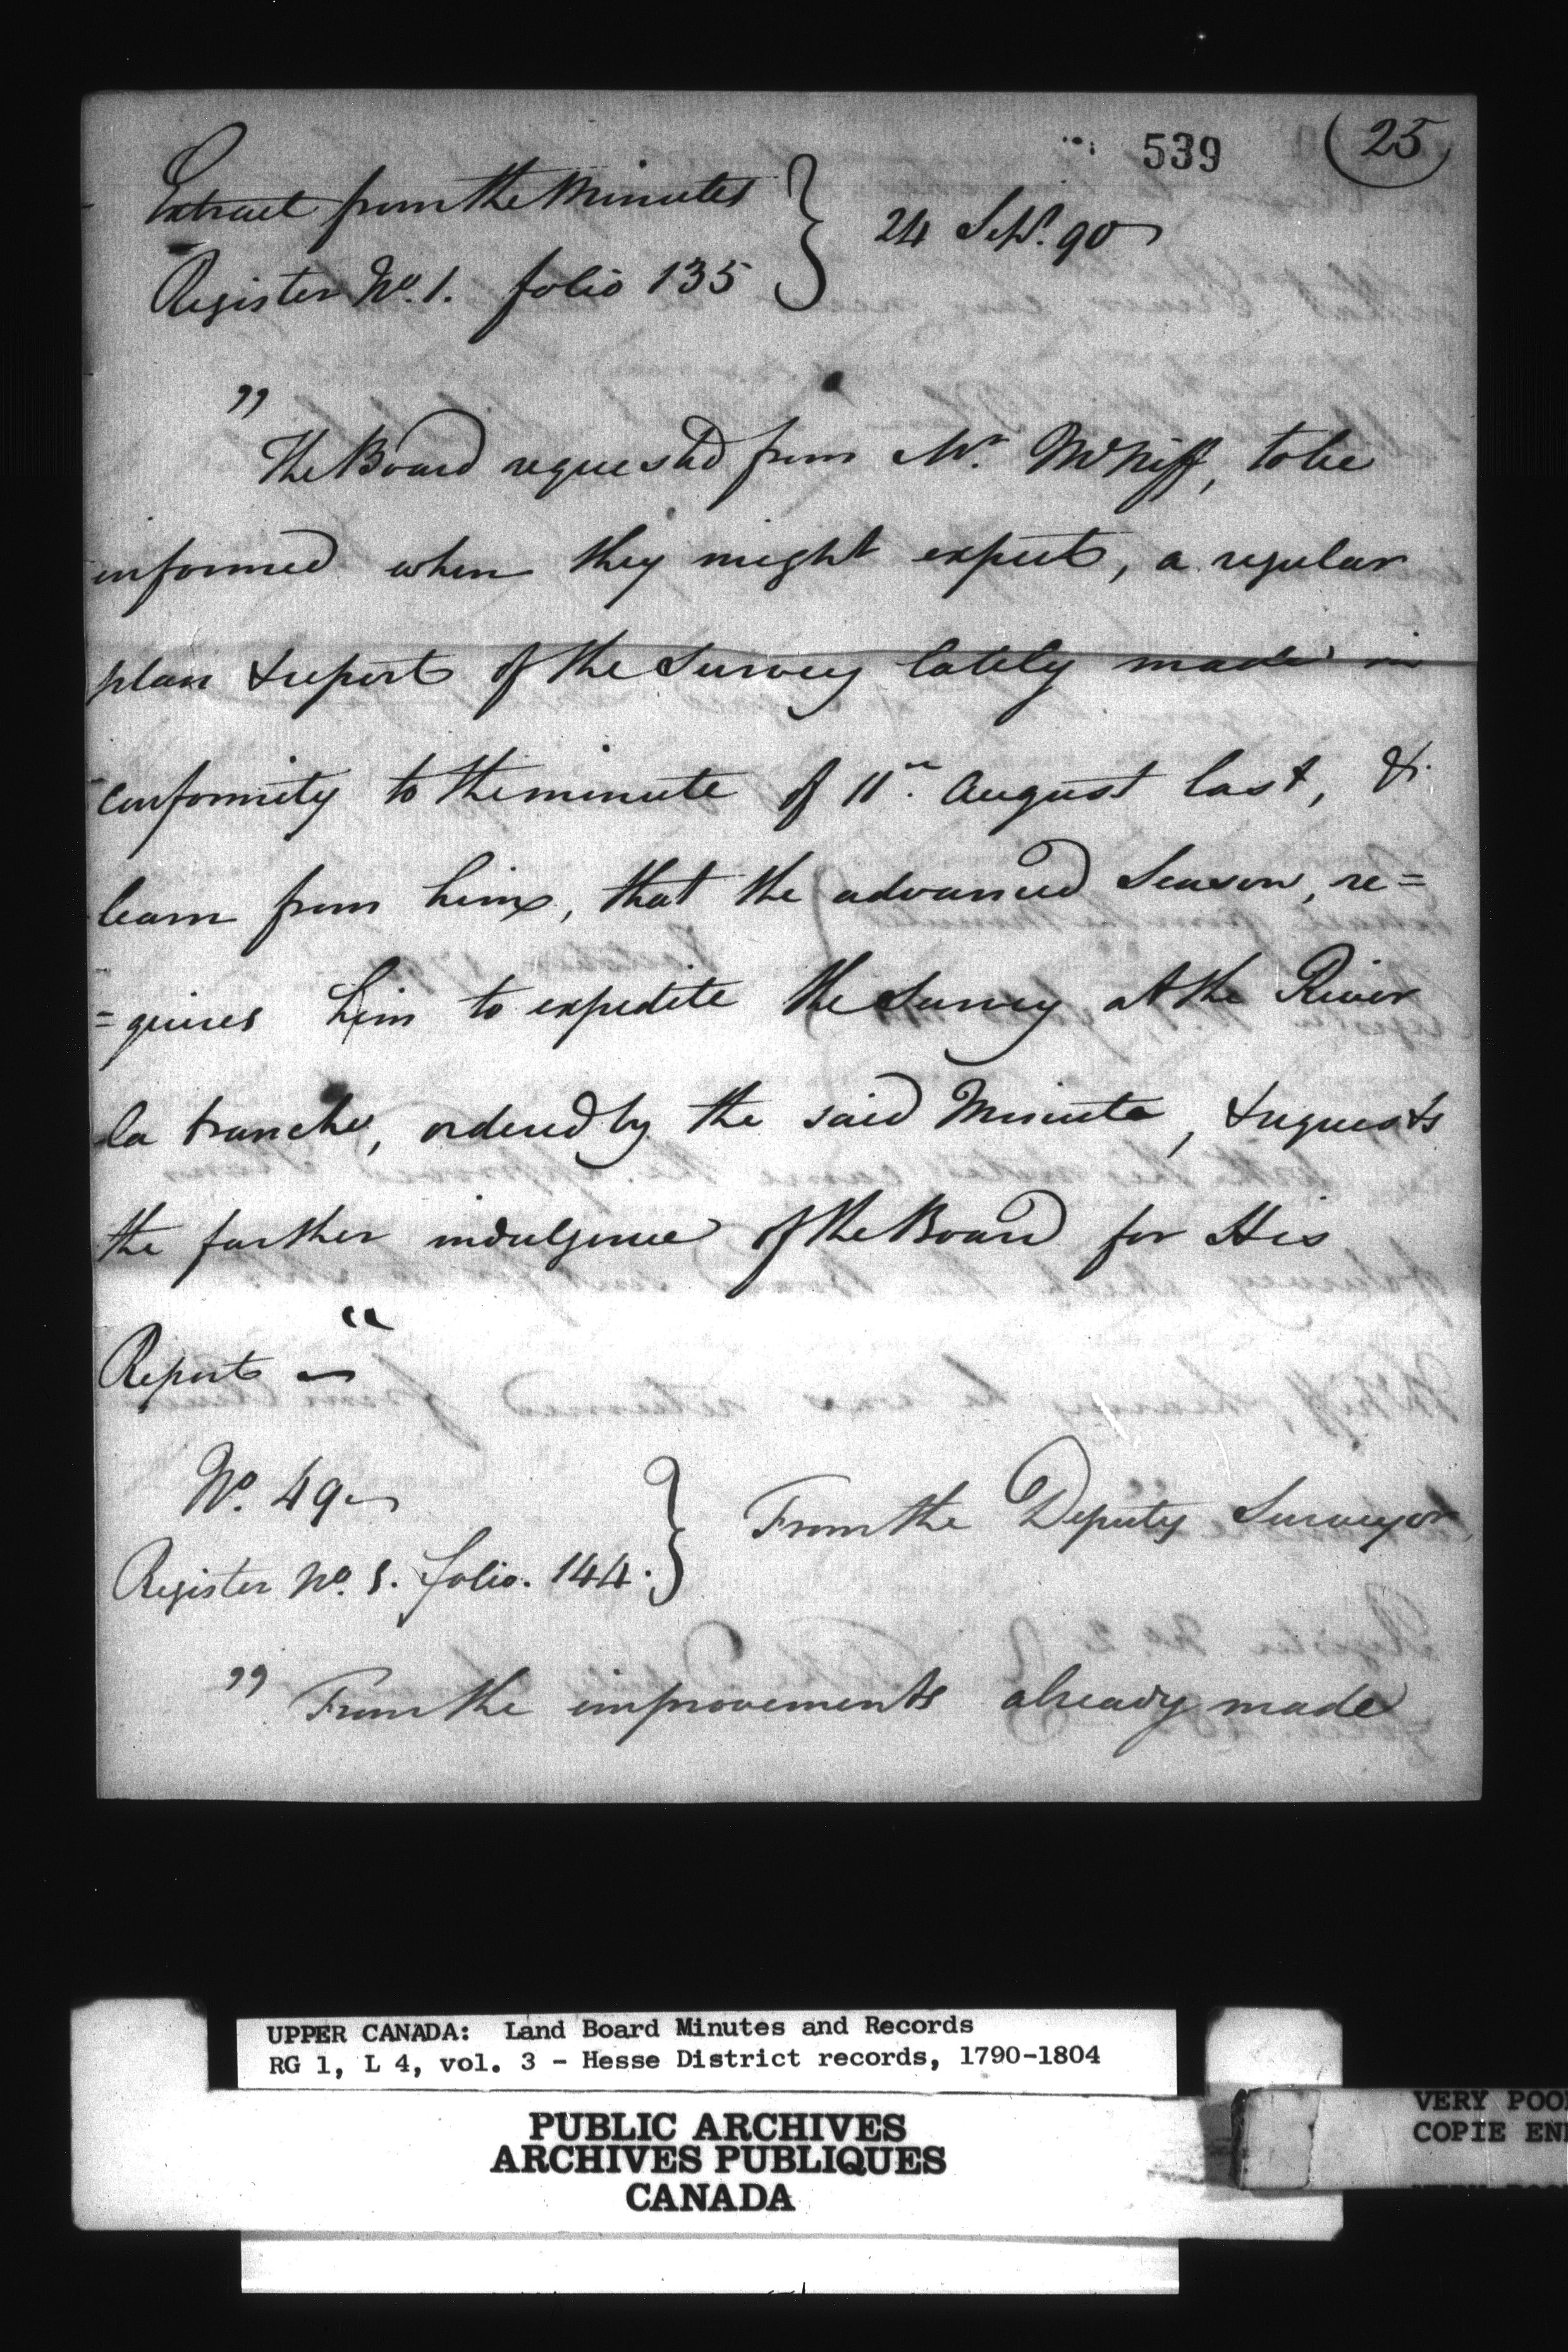 539 (25)
Extract from the Minutes } 24 Sepr. 90
Register No. 1. folio 135
" The Board requested from Mr. McNiff, to be
informed when they might expect, a regular
plan & report of the Survey lately made in
conformity to the minute of 11th. August last, &
learn from him, that the advanced Season, re=
=quires him to expedite the Survey at the River
la tranche, ordered by the said Minute, & requests
the farther indulgence of the Board for His
Report "
No. 49
Register No. 1. folio. 144. } From the Deputy Surveyor
" From the improvements already made
UPPER CANADA: Land Board Minutes and Records
RG 1, L 4, vol. 3 - Hesse District records, 1790-1804
PUBLIC ARCHIVES
ARCHIVES PUBLIQUES
CANADA
VERY POO
COPIE EN